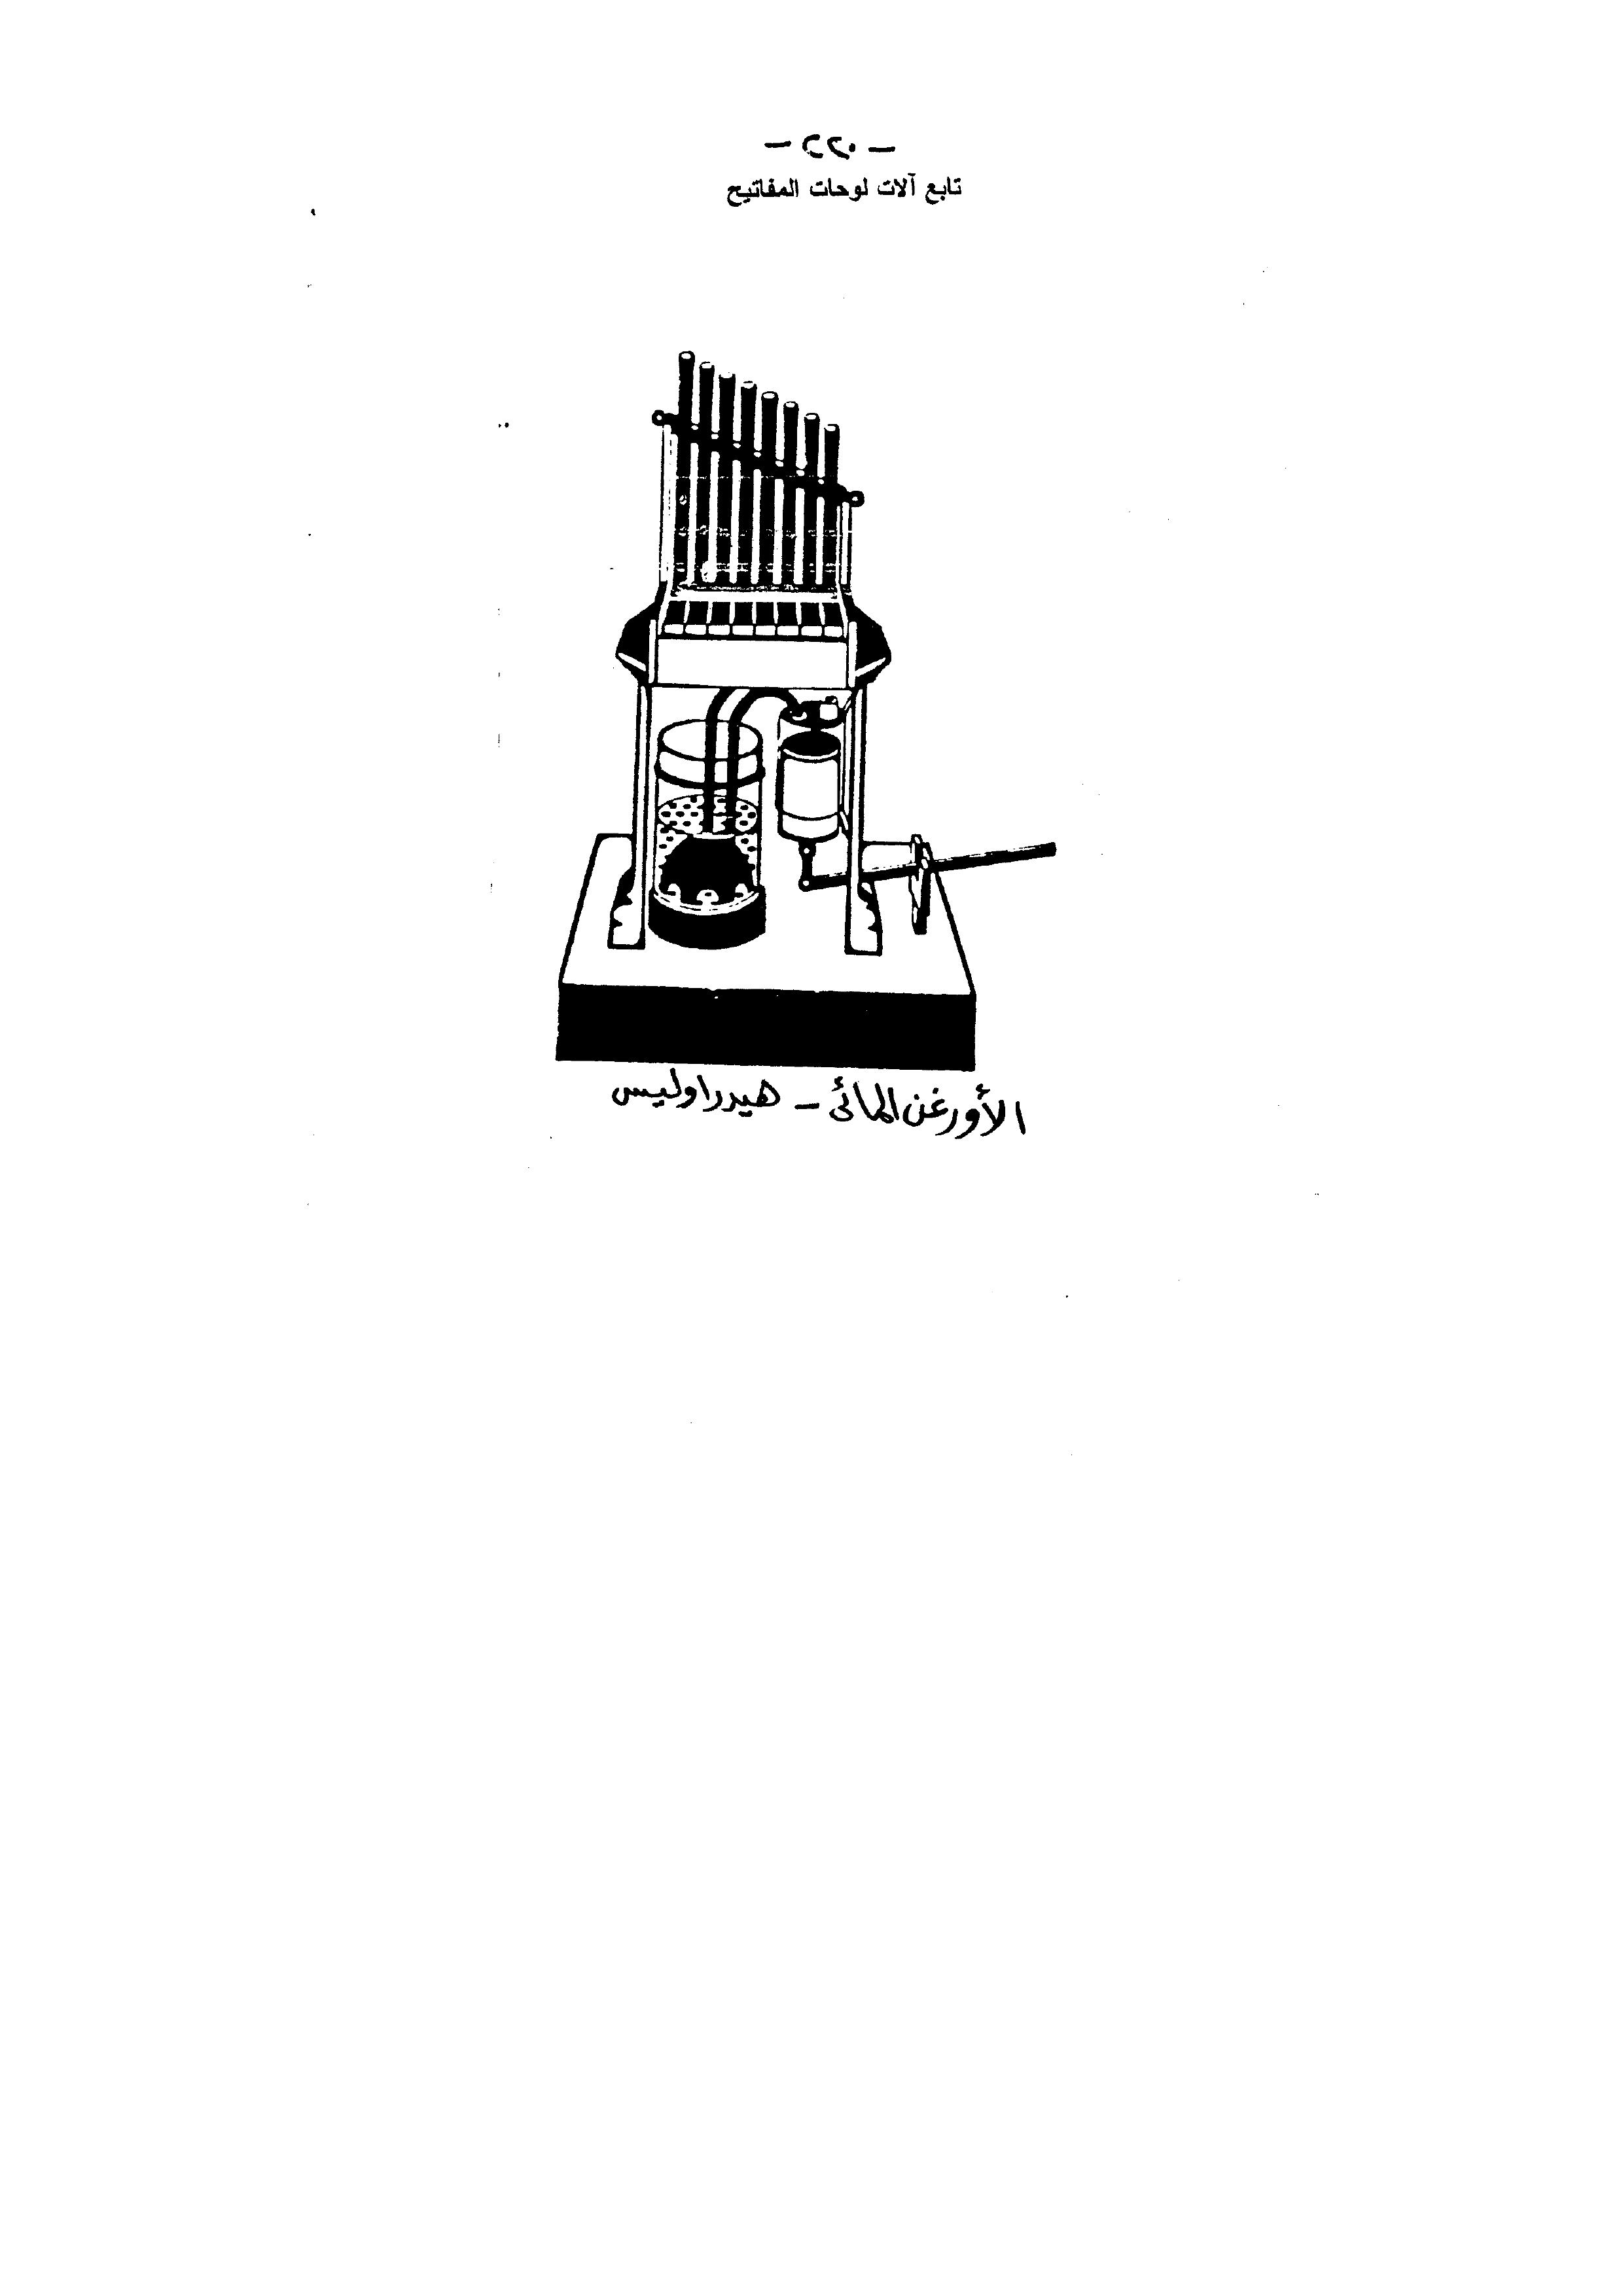 - ٢٢٠ -
تابع آلات لوحات المفاتيح
الأورغن المائى - هيدراوليس